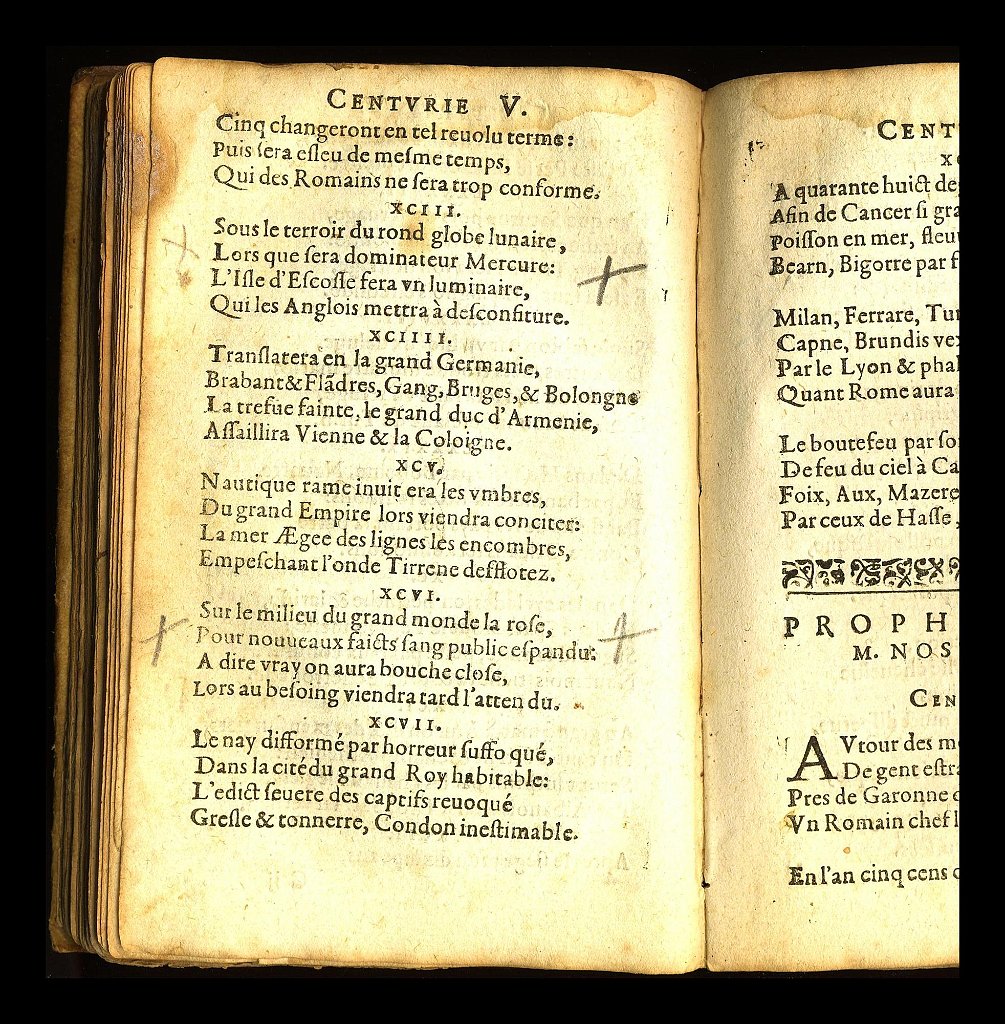 CENTVRIE V.
Cinq changeront en tel reuolu terme:
Puis ſera eſleu de meſme temps,
Qui des Romains ne ſera trop conforme.
XCIII.
Sous le terroir du rond globe lunaire,
Lors que ſera dominateur Mercure:
L'Iſle d'Eſcoſſe fera vn luminaire,
Qui les Anglois mettra à deſconfiture.
XCIIII.
Tranſlatera en la grand Germanie,
Brabant & Flãdres, Gang, Bruges, & Bolongne
La trefue fainte, le grand duc d'Armenie,
Aſſaillira Vienne & la Coloigne.
XCV.
Nautique rame inuit era les vmbres,
Du grand Empire lors viendra conciter:
La mer Ægee des lignes les encombres,
Empeſchant l'onde Tirrene defflotez.
XCVI.
Sur le milieu du grand monde la roſe,
Pour nouueaux faicts ſang public eſpandu:
A dire vray on aura bouche cloſe,
Lors au beſoing viendra tard l'atten du.
XCVII.
Le nay difformé par horreur ſuffo qué,
Dans la cité du grand Roy habitable:
L'edict ſeuere des captifs reuoqué
Greſle & tonnerre, Condon ineſtimable.
CENT
A quarante huict de
Afin de Cancer ſi gra
Poiſſon en mer, fleu
Bearn, Bigorre par f
Milan, Ferrare, Tu
Capne, Brundis ve
Par le Lyon & phal
Quant Rome aura
Le boutefeu par ſo
De feu du ciel à Ca
Foix, Aux, Mazere
Par ceux de Haſſe,
PROPH
M. NOS
CEN
AVtour des m
De gent eſtra
Pres de Garonne
Vn Romain chef
En l'an cinq cens